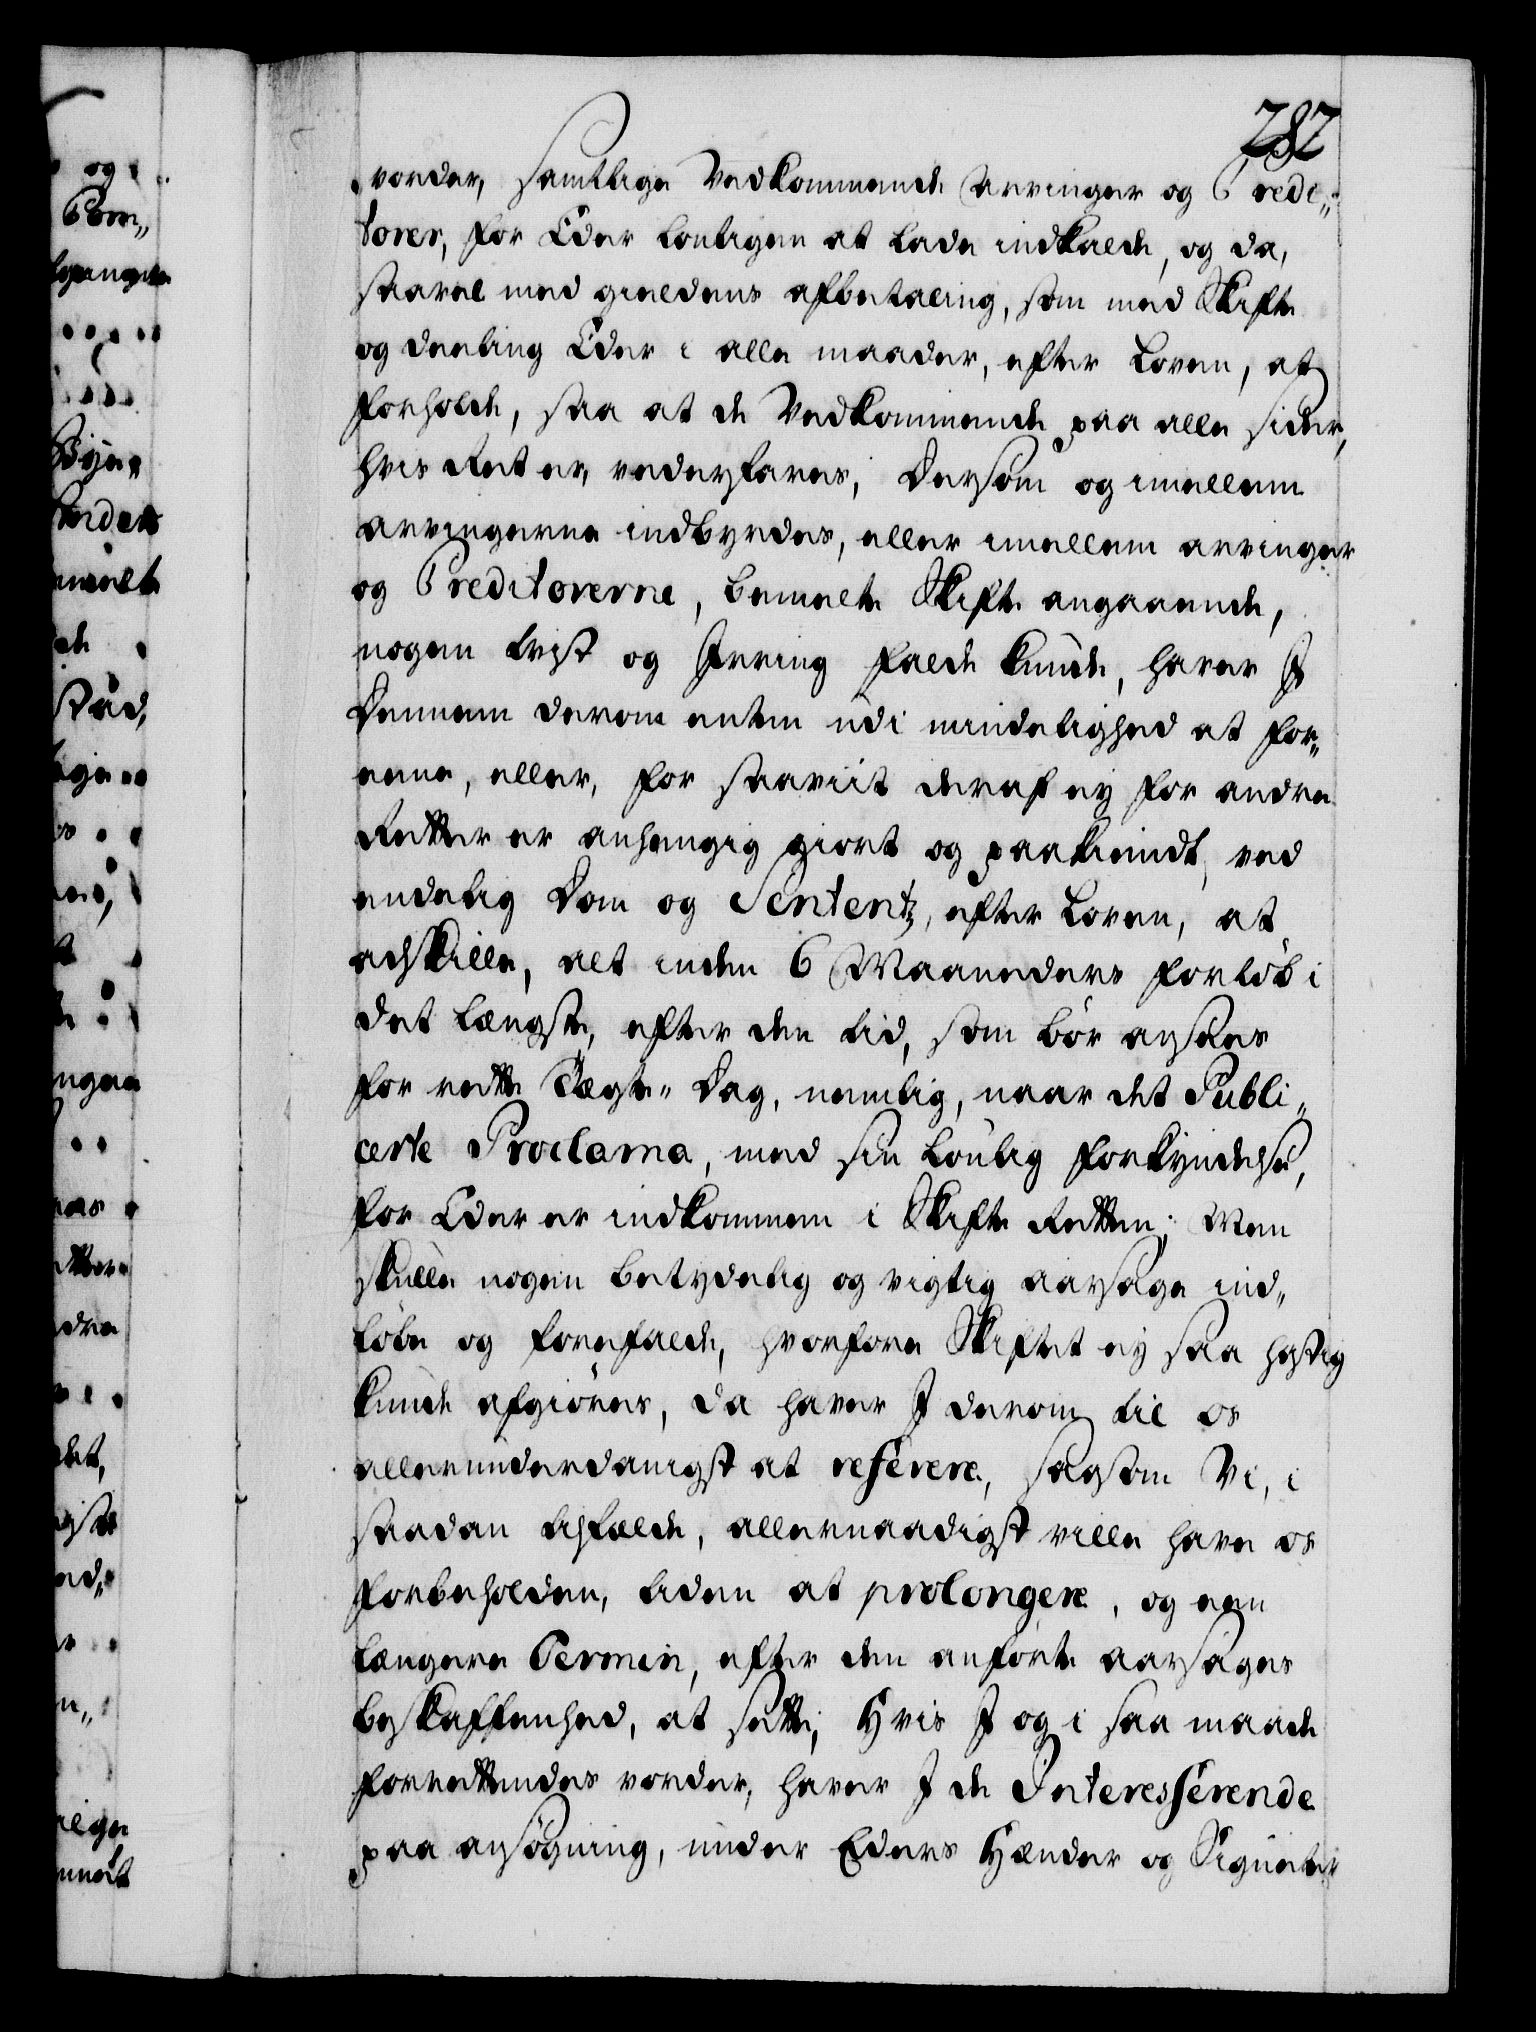 287
vorder, samtlige Vedkommende Arvinger og Credi„
torer, for Eder lovligen at lade indkalde, og da,
saavel med gieldens afbetaling, som med Skifte
og deeling Eder i alle maader, efter Loven, at
forholde, saa at de Vedkommende paa alle sider,
hvis Ret er, vederfares, Dersom og imellem
arvingerne indbyrdes, eller imellem arvinger
og Creditorerne, bemelte Skifte angaaende,
nogen tvist og Irring falde kunde, haver I
Dennem derom enten udi mindelighed at for„
eene, eller, for saaviit deraf ey for andre
Retter er anhengig giort og paakiendt, ved
endelig Dom og Sententz, efter Loven, at
adskille, alt inden 6 Maaneders forløb i
det længste, efter den tid, som bør ansees
for rette Tægte„ Dag, nemlig, naar det Publi„
certe Proclama, med sin lovlig forkyndelse,
for Eder er indkommen i Skifte Retten; Men
skulle nogen betydelig og vigtig aarsage ind„
løbe og forefalde, hvorfore Skiftet ey saa hastig
kunde afgiøres, da haver I derom til os
allerunderdanigst at referere, saasom Vi, i
saadan tilfælde, allernaadigst ville have os
forbeholden, tiden at prolongere, og een
længere Termin, efter den anførte aarsages
beskaffenhed, at sette; Hvis I og i saa maade
forrettendes vorder, haver I de Interesserende
paa ansøgning, under Eders Hænder og Signeter
og
Com„